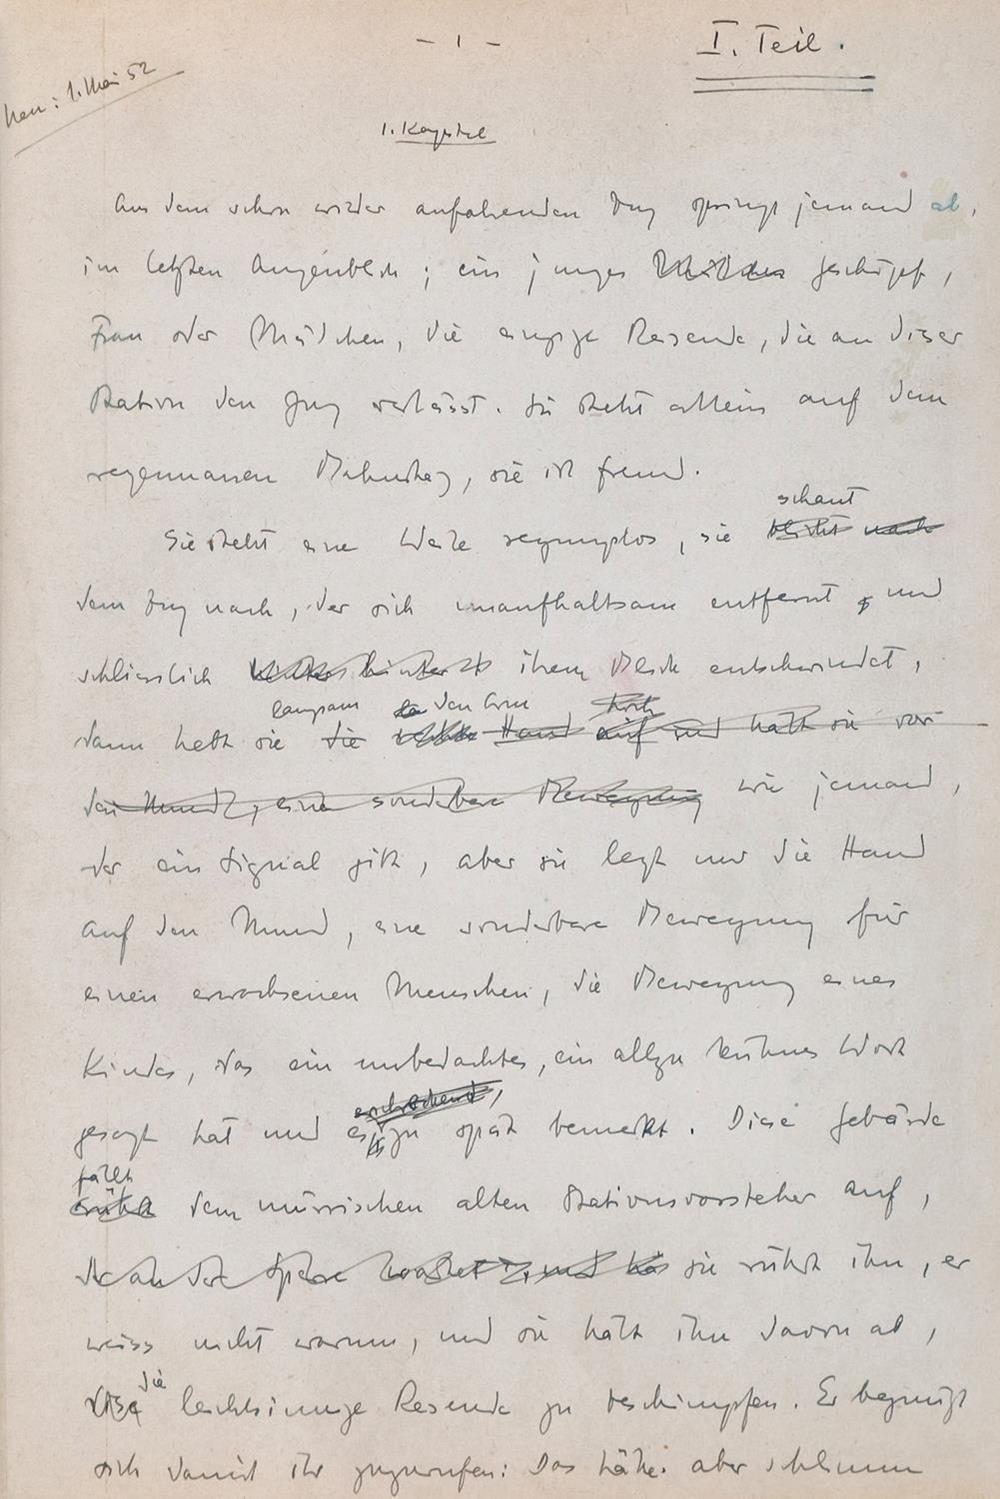 - 1 -
I. Teil.
neu: 1. Mai 52
1. Kapitel
Aus dem schon wieder anfahrenden Zug springt jemand ab,
im letzten Augenblick; ein junges geschöpf,
Frau oder Mädchen, die einzige Reisende, die an dieser
Station den Zug verlässt. Sie steht allein auf dem
regennassen Bahnsteig, sie ist fremd.
schaut
Sie steht eine Weile regungslos, sie blickt nach
dem Zug nach, der sich unaufhaltsam entfernt und
schliesslich hinter ihrem Blick entschwindet,
langsam den Arm hoch
dann hebt sie die rechte Hand auf und hält sie vor
den Mund, eine sonderbare Bewegung wie jemand,
der ein Signal gibt, aber sie legt nur die Hand
auf den Mund, eine sonderbare Bewegung für
einen erwachsenen Menschen, die Bewegung eines
Kindes, das ein unbedachtes, ein allzu kühnes Wort
erschreckend,
gesagt hat und es zu spät bemerkt. Diese Gebärde
fällt
rührt dem mürrischen alten Stationsvorsteher auf,
der an der Sperre wartet, und sie rührt ihn, er
weiss nicht warum, und sie hält ihn davon ab,
die
diese leichtsinnige Reisende zu beschimpfen. Er begnügt
sich damit ihr zuzurufen: Das hätte aber schlimm